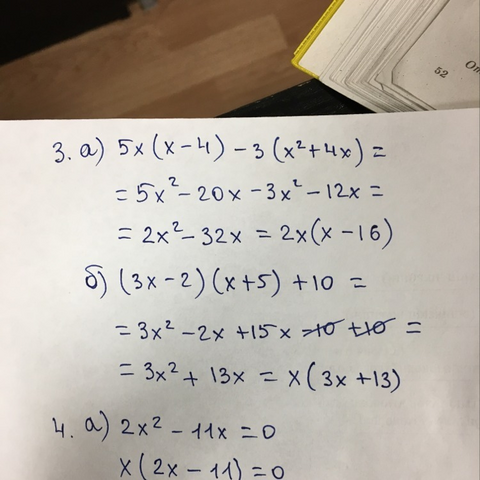 52
3. а) 5x(x-4) -3(x²+4x) =
= 5x² - 20x - 3x² - 12x =
= 2x² - 32x = 2x(x - 16)
б) (3x - 2)(x+5) + 10 =
= 3x² - 2x + 15x -10 +10 =
= 3x² + 13x = x(3x + 13)
4. а) 2x² - 11x = 0
x(2x - 11) = 0